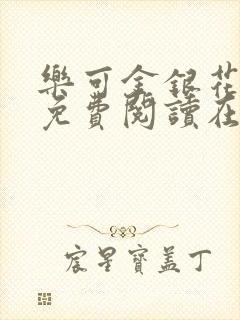 樂可金銀花
免費閱讀在
宸星寶蓋丁